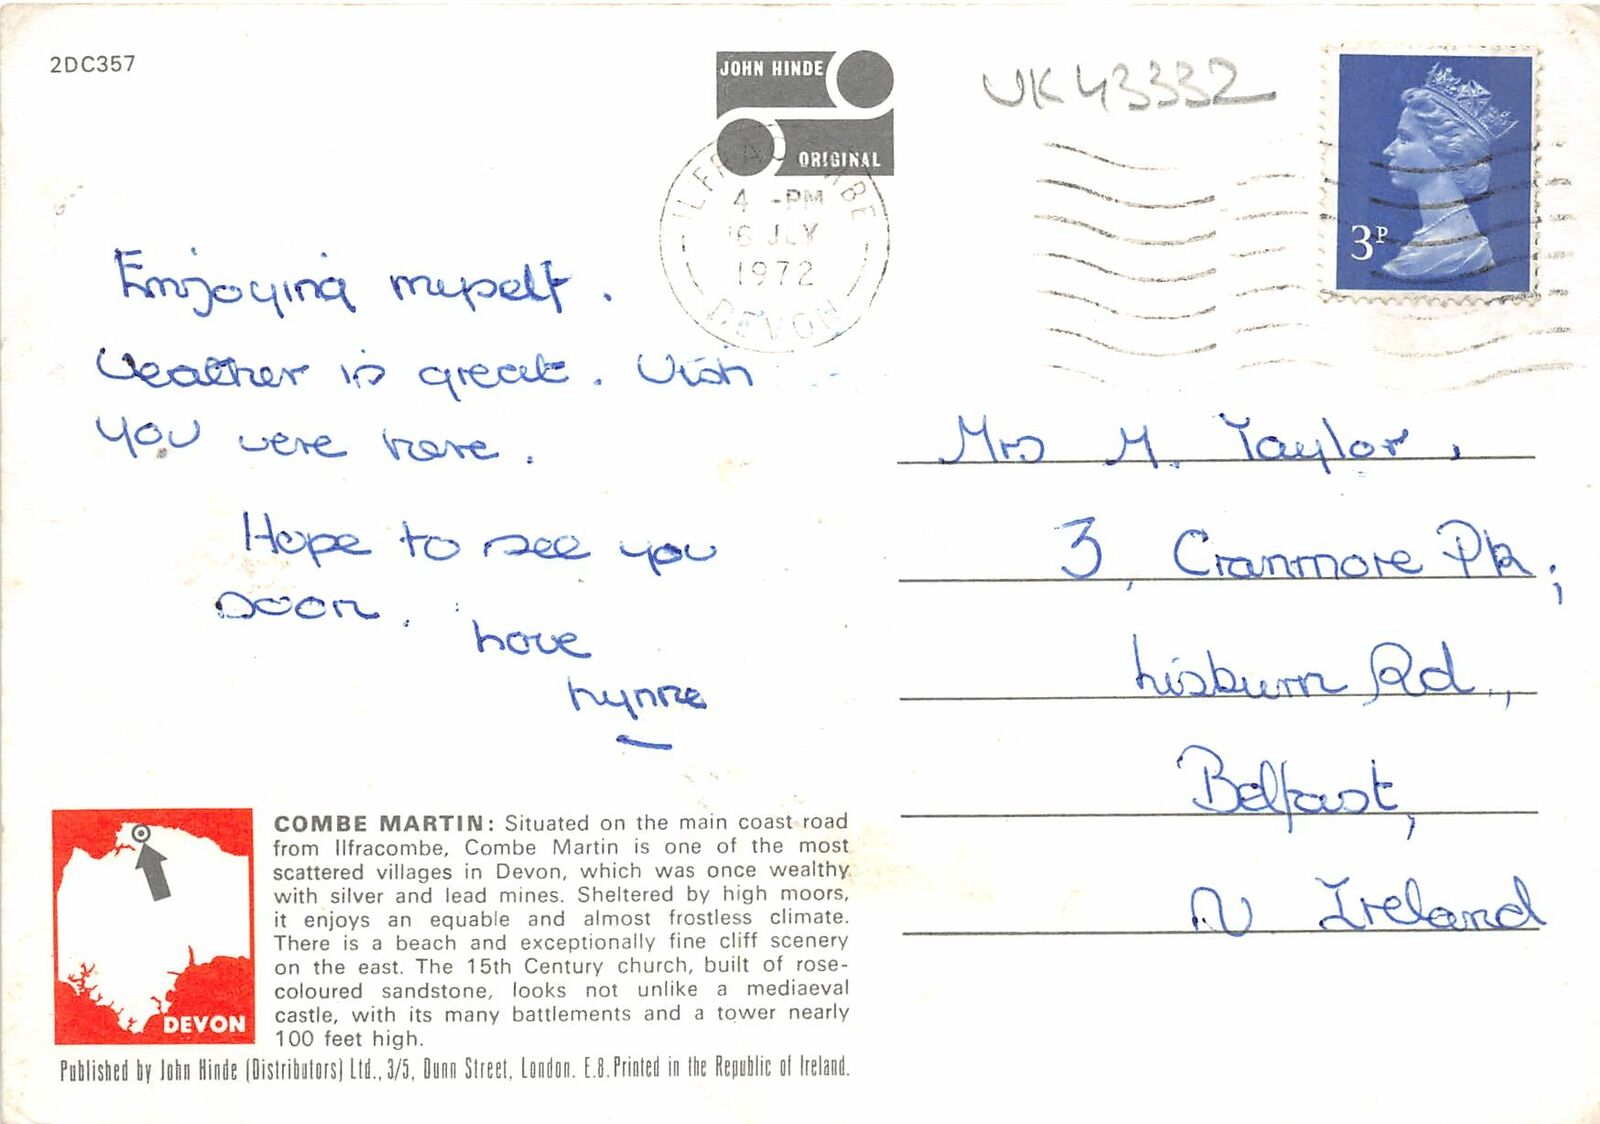 2DC357
JOHN HINDE
ORIGINAL
UK43332
ILFRACOMBE
4 -PM
6 JLY
1972
DEVON
3P
Enjoying myself.
Weather is great. Wish
you were here.
Hope to see you
soon.
Love
Lynne
Mrs M. Taylor,
3, Cranmore Pk,
Lisburn Rd.,
Belfast,
N. Ireland
DEVON
COMBE MARTIN: Situated on the main coast road
from Ilfracombe, Combe Martin is one of the most
scattered villages in Devon, which was once wealthy
with silver and lead mines. Sheltered by high moors,
it enjoys an equable and almost frostless climate.
There is a beach and exceptionally fine cliff scenery
on the east. The 15th Century church, built of rose-
coloured sandstone, looks not unlike a mediaeval
castle, with its many battlements and a tower nearly
100 feet high.
Published by John Hinde (Distributors) Ltd., 3/5, Dunn Street, London. E.8. Printed in the Republic of Ireland.